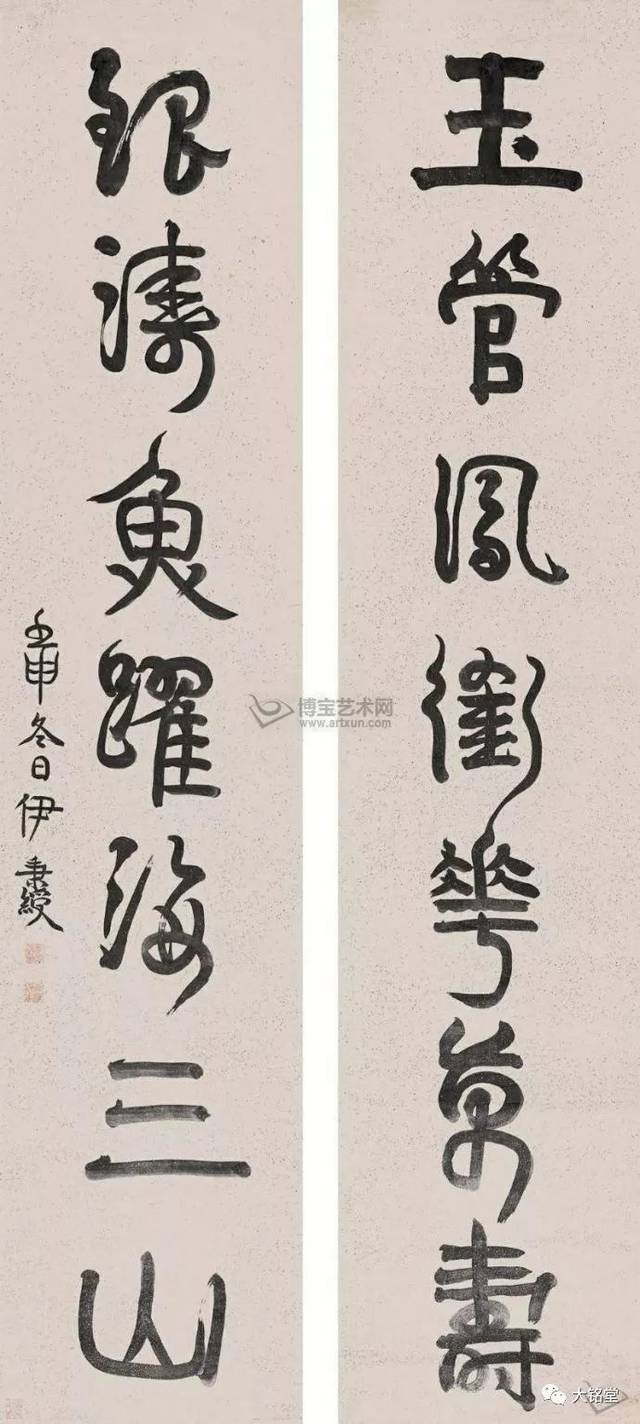 玉管鳳銜華萬壽
銀濤魚躍海三山
壬申冬日伊秉綬
博宝艺术网
www.artxun.com
大铭堂